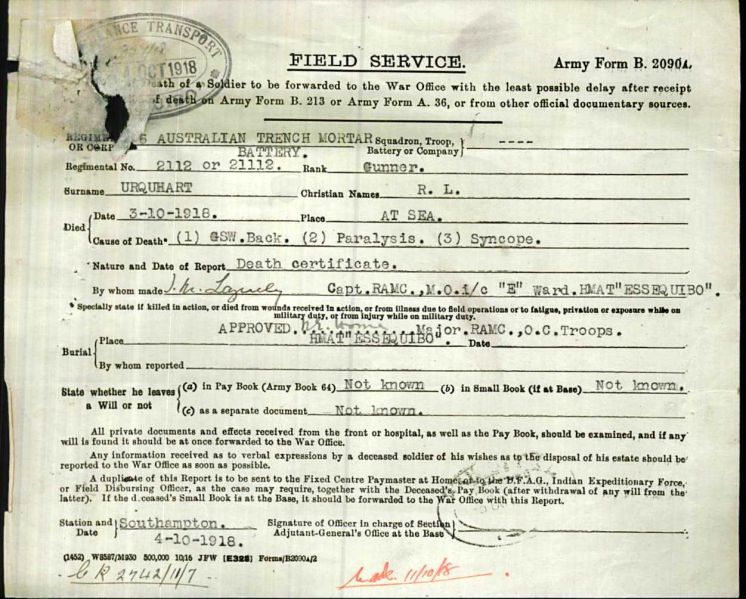 TRANSPORT
OCT 1918
FIELD SERVICE.
Army Form B. 2090A.
of a Soldier to be forwarded to the War Office with the least possible delay after receipt
of death on Army Form B. 213 or Army Form A. 36, or from other official documentary sources.
6 AUSTRALIAN TRENCH MORTAR Squadron, Troop, ----
OR CORP BATTERY. Battery or Company
Regimental No. 2112 or 21112. Rank Gunner.
Surname URQUHART Christian Names R. L.
Died Date 3-10-1918. Place AT SEA.
Cause of Death* (1) GSW.Back. (2) Paralysis. (3) Syncope.
Nature and Date of Report Death certificate.
By whom made Capt.RAMC.,M.O.i/c "E" Ward.HMAT"ESSEQUIBO".
* Specially state if killed in action, or died from wounds received in action, or from illness due to field operations or to fatigue, privation or exposure while on
military duty, or from injury while on military duty.
APPROVED. Major.RAMC.,O.C.Troops.
Burial Place HMAT"ESSEQUIBO". Date
By whom reported
State whether he leaves a Will or not (a) in Pay Book (Army Book 64) Not known (b) in Small Book (if at Base) Not known.
(c) as a separate document Not known.
All private documents and effects received from the front or hospital, as well as the Pay Book, should be examined, and if any
will is found it should be at once forwarded to the War Office.
Any information received as to verbal expressions by a deceased soldier of his wishes as to the disposal of his estate should be
reported to the War Office as soon as possible.
A duplicate of this Report is to be sent to the Fixed Centre Paymaster at Home or to the D.F.A.G., Indian Expeditionary Force,
or Field Disbursing Officer, as the case may require, together with the Deceased's Pay Book (after withdrawal of any will from the
latter). If the deceased's Small Book is at the Base, it should be forwarded to the War Office with this Report.
Station and Date Southampton. Signature of Officer in charge of Section
4-10-1918. Adjutant-General's Office at the Base
(1452) W8587/M930 500,000 10/16 JFW [E328] Forms/B2090A/2
2742/11/7 11/10/18